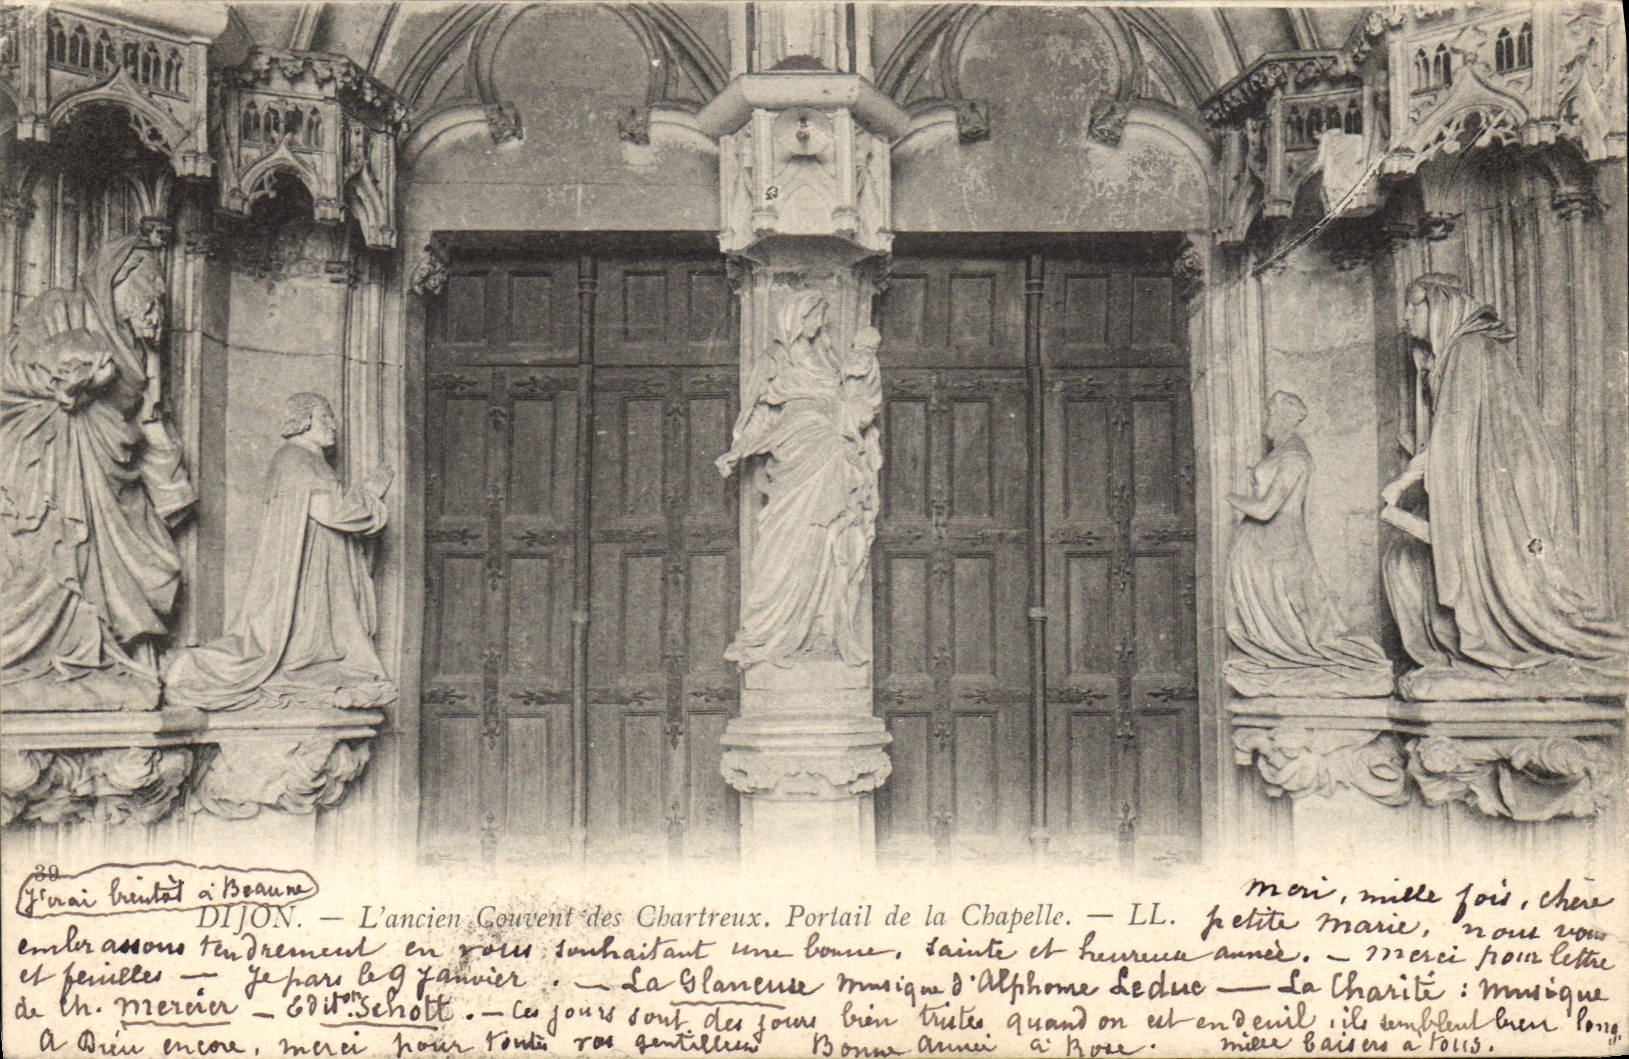 39
J'irai bientôt à Beaune
DIJON. — L'ancien Couvent des Chartreux. Portail de la Chapelle. — LL.
Merci, mille fois, chère
petite Marie, nous vous
embrassons tendrement en vous souhaitant une bonne, sainte et heureuse année. — Merci pour lettre
et feuilles — Je pars le 9 Janvier. — La Glaneuse musique d'Alphonse Leduc — La Charité : musique
de Ch. Mercier — Editon Schott. — Ces jours sont des jours bien tristes quand on est en deuil, ils semblent bien longs.
A Dieu encore, merci pour toutes vos gentillesses Bonne Année à Rose. mille baisers à tous.